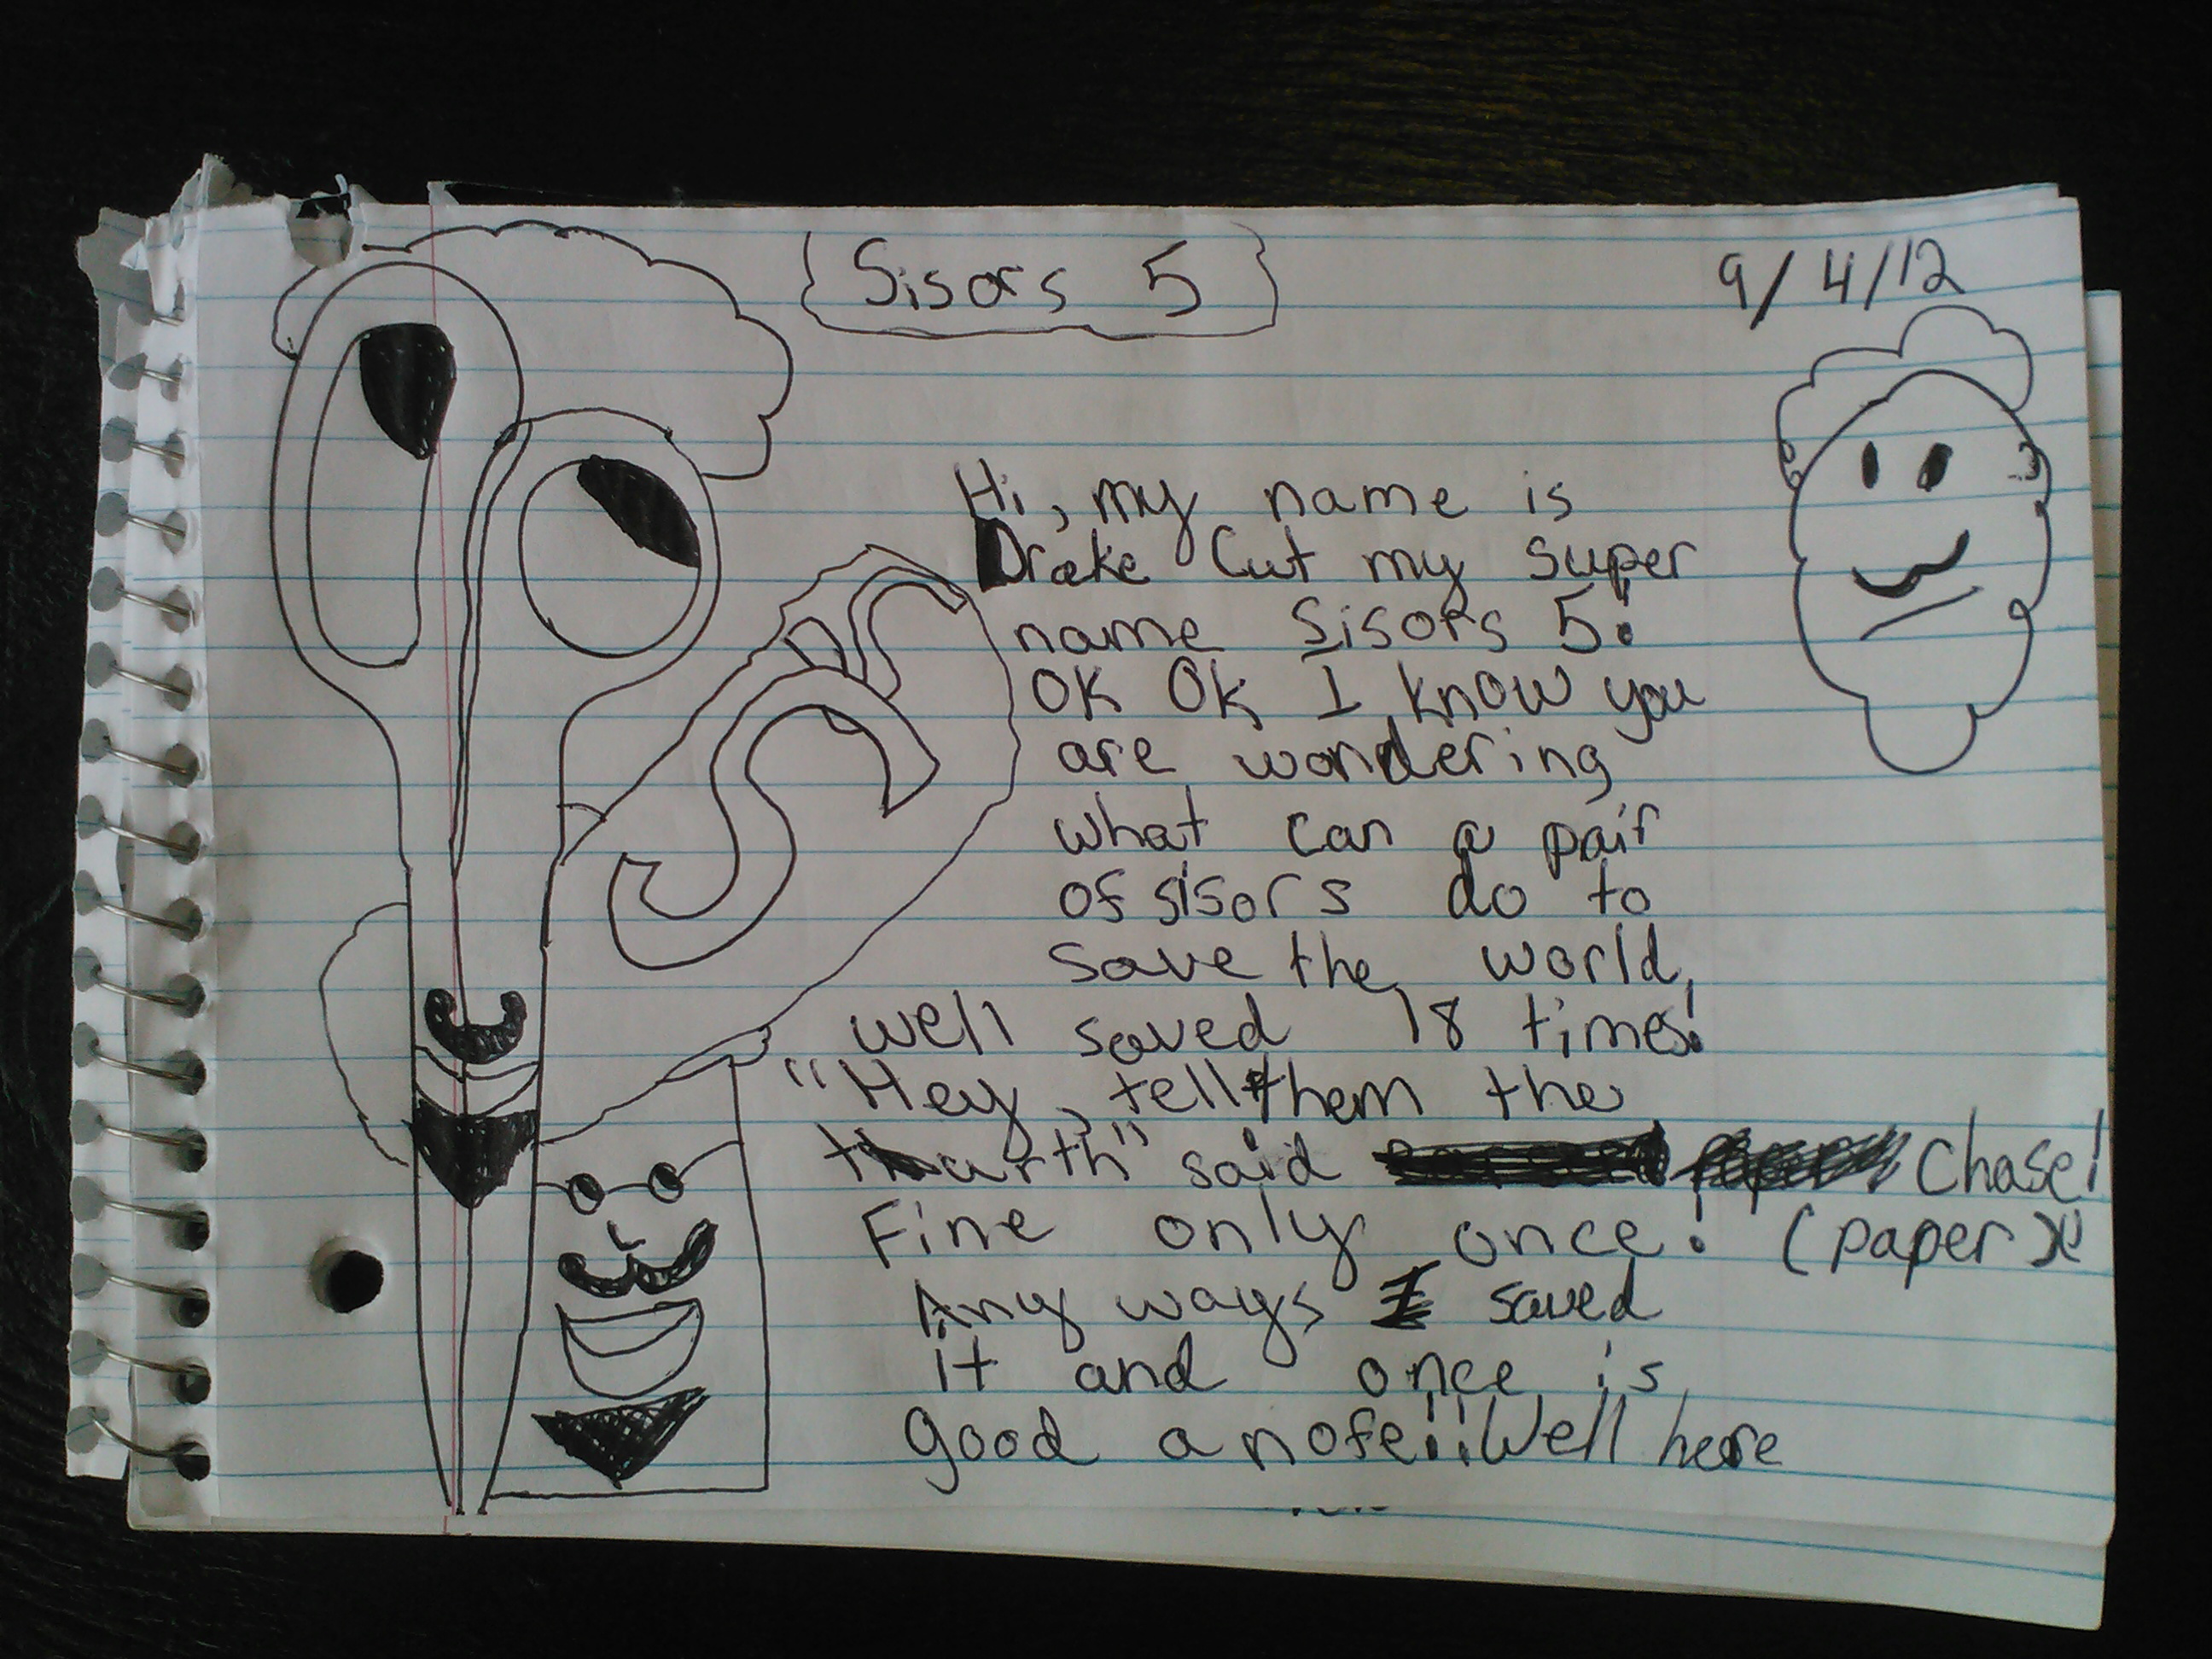 Sisors 5
9/4/12
Hi, my name is
Drake Cut my super
name Sisors 5!
OK OK I know you
are wondering
what can a pair
of sisors do to
save the world,
well saved 18 times!
"Hey, tell them the
thurth" said Chase!
Fine only once! (paper)
Any ways I saved
it and once is
good anofe!!! Well here
S